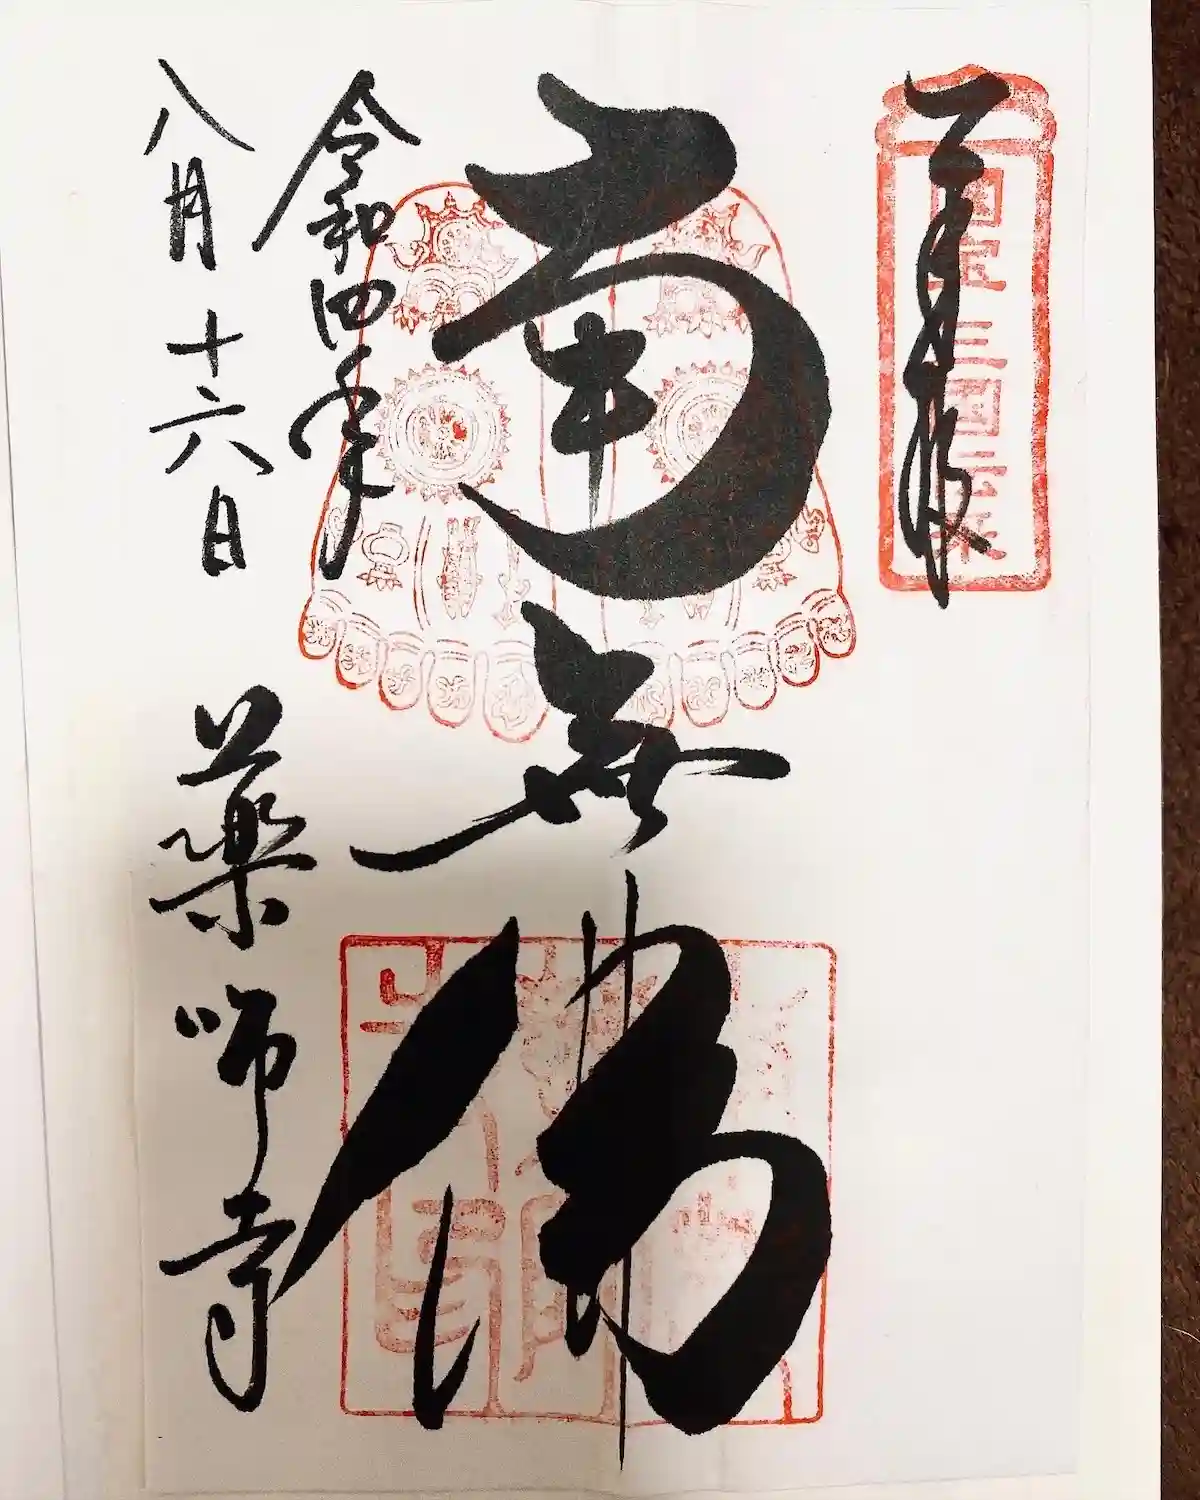 奉拝
国宝 三国伝来
南無佛
令和四年
八月十六日
藥師寺